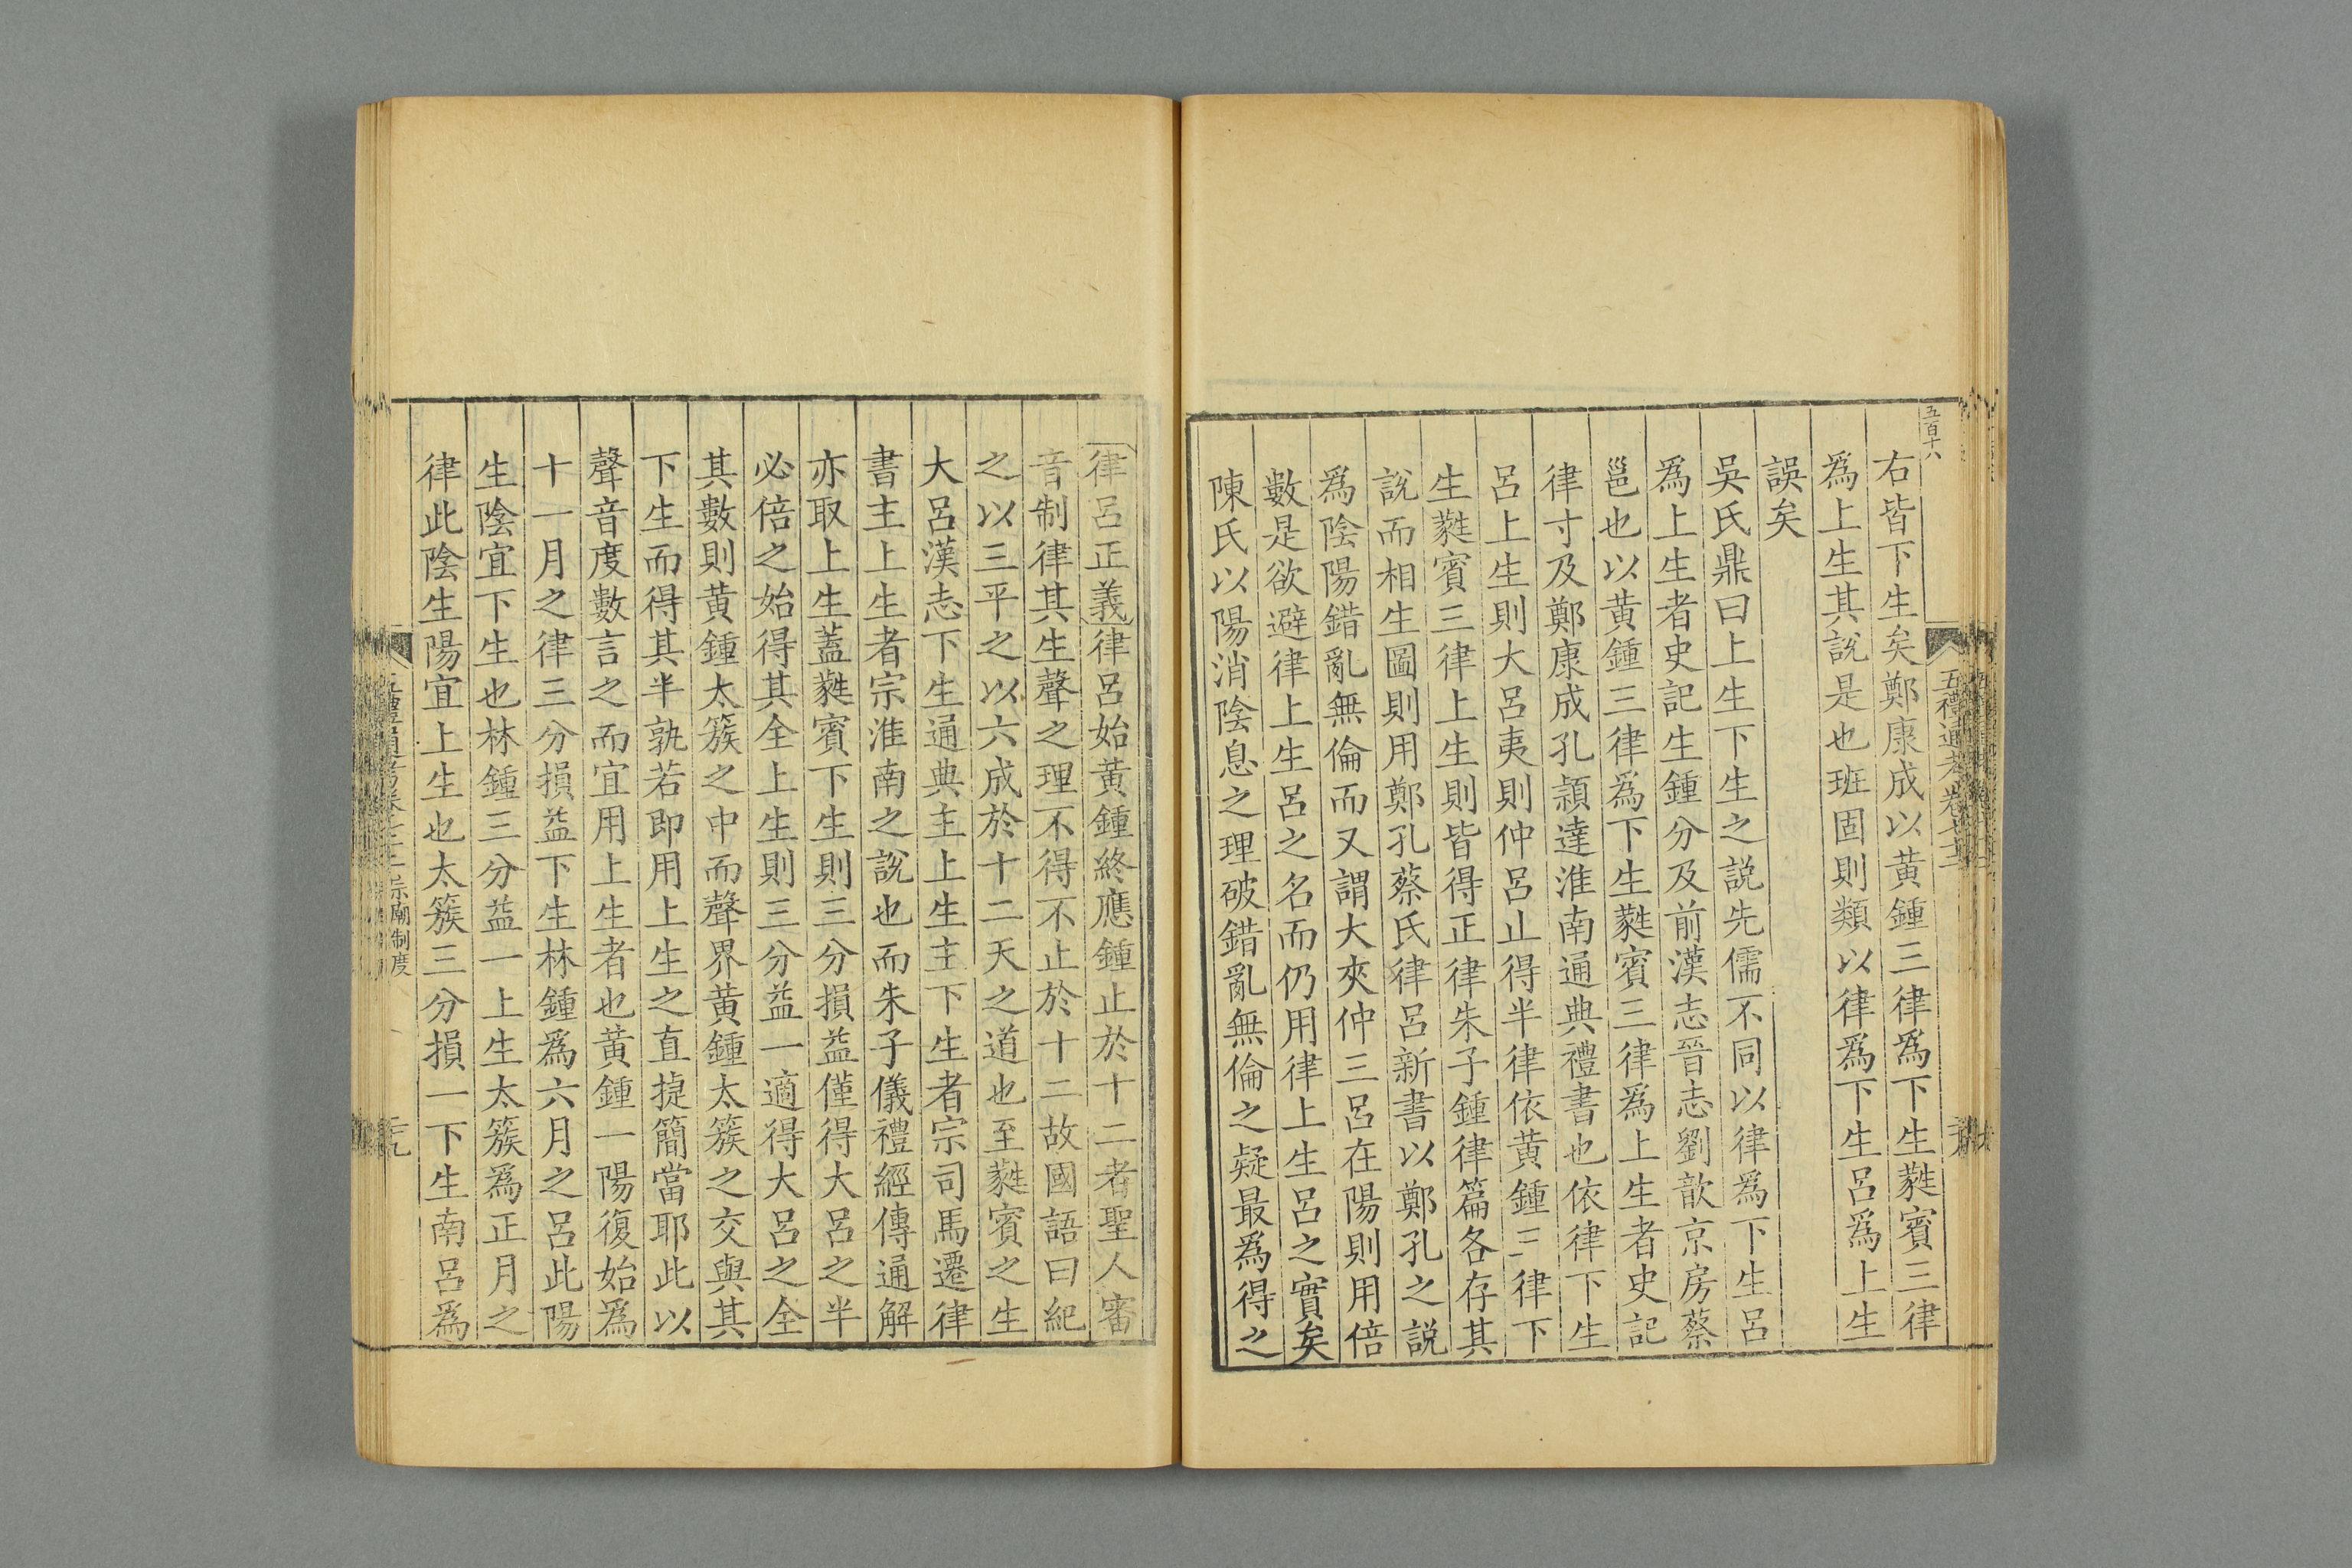 五百十八
五禮通考卷七十三
右皆下生矣鄭康成以黃鍾三律爲下生蕤賓三律
爲上生其說是也班固則類以律爲下生呂爲上生
誤矣
吳氏鼎曰上生下生之說先儒不同以律爲下生呂
爲上生者史記生鍾分及前漢志晉志劉歆京房蔡
邕也以黃鍾三律爲下生蕤賓三律爲上生者史記
律寸及鄭康成孔穎達淮南通典禮書也依律下生
呂上生則大呂夷則仲呂止得半律依黃鍾三律下
生蕤賓三律上生則皆得正律朱子鍾律篇各存其
說而相生圖則用鄭孔蔡氏律呂新書以鄭孔之說
爲陰陽錯亂無倫而又謂大夾仲三呂在陽則用倍
數是欲避律上生呂之名而仍用律上生呂之實矣
陳氏以陽消陰息之理破錯亂無倫之疑最爲得之
律呂正義律呂始黃鍾終應鍾止於十二者聖人審
音制律其生聲之理不得不止於十二故國語曰紀
之以三平之以六成於十二天之道也至蕤賓之生
大呂漢志下生通典主上生主下生者宗司馬遷律
書主上生者宗淮南之說也而朱子儀禮經傳通解
亦取上生蓋蕤賓下生則三分損益僅得大呂之半
必倍之始得其全上生則三分益一適得大呂之全
其數則黃鍾太簇之中而聲界黃鍾太簇之交與其
下生而得其半孰若即用上生之直捷簡當耶此以
聲音度數言之而宜用上生者也黃鍾一陽復始爲
十一月之律三分損益下生林鍾爲六月之呂此陽
生陰宜下生也林鍾三分益一上生太簇爲正月之
律此陰生陽宜上生也太簇三分損一下生南呂爲
宗廟制度